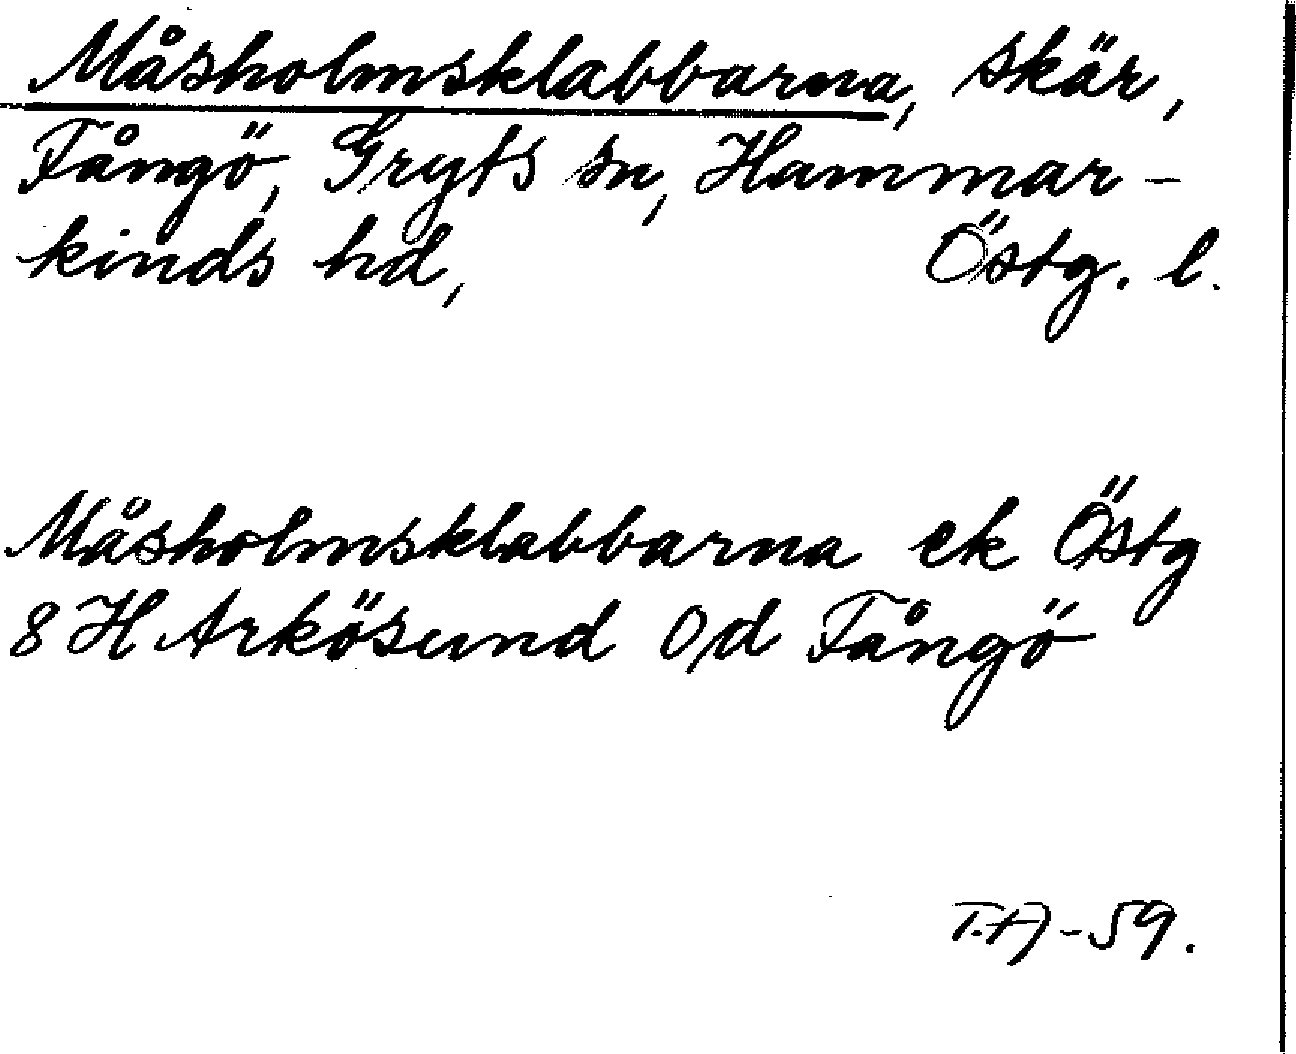 Måsholmsklabbarna, skär,
Fångö, Gryts sn, Hammar-
kinds hd, Östg. l.
Måsholmsklabbarna ek Östg
8 H Arkösund Od Fångö
T.A-59.